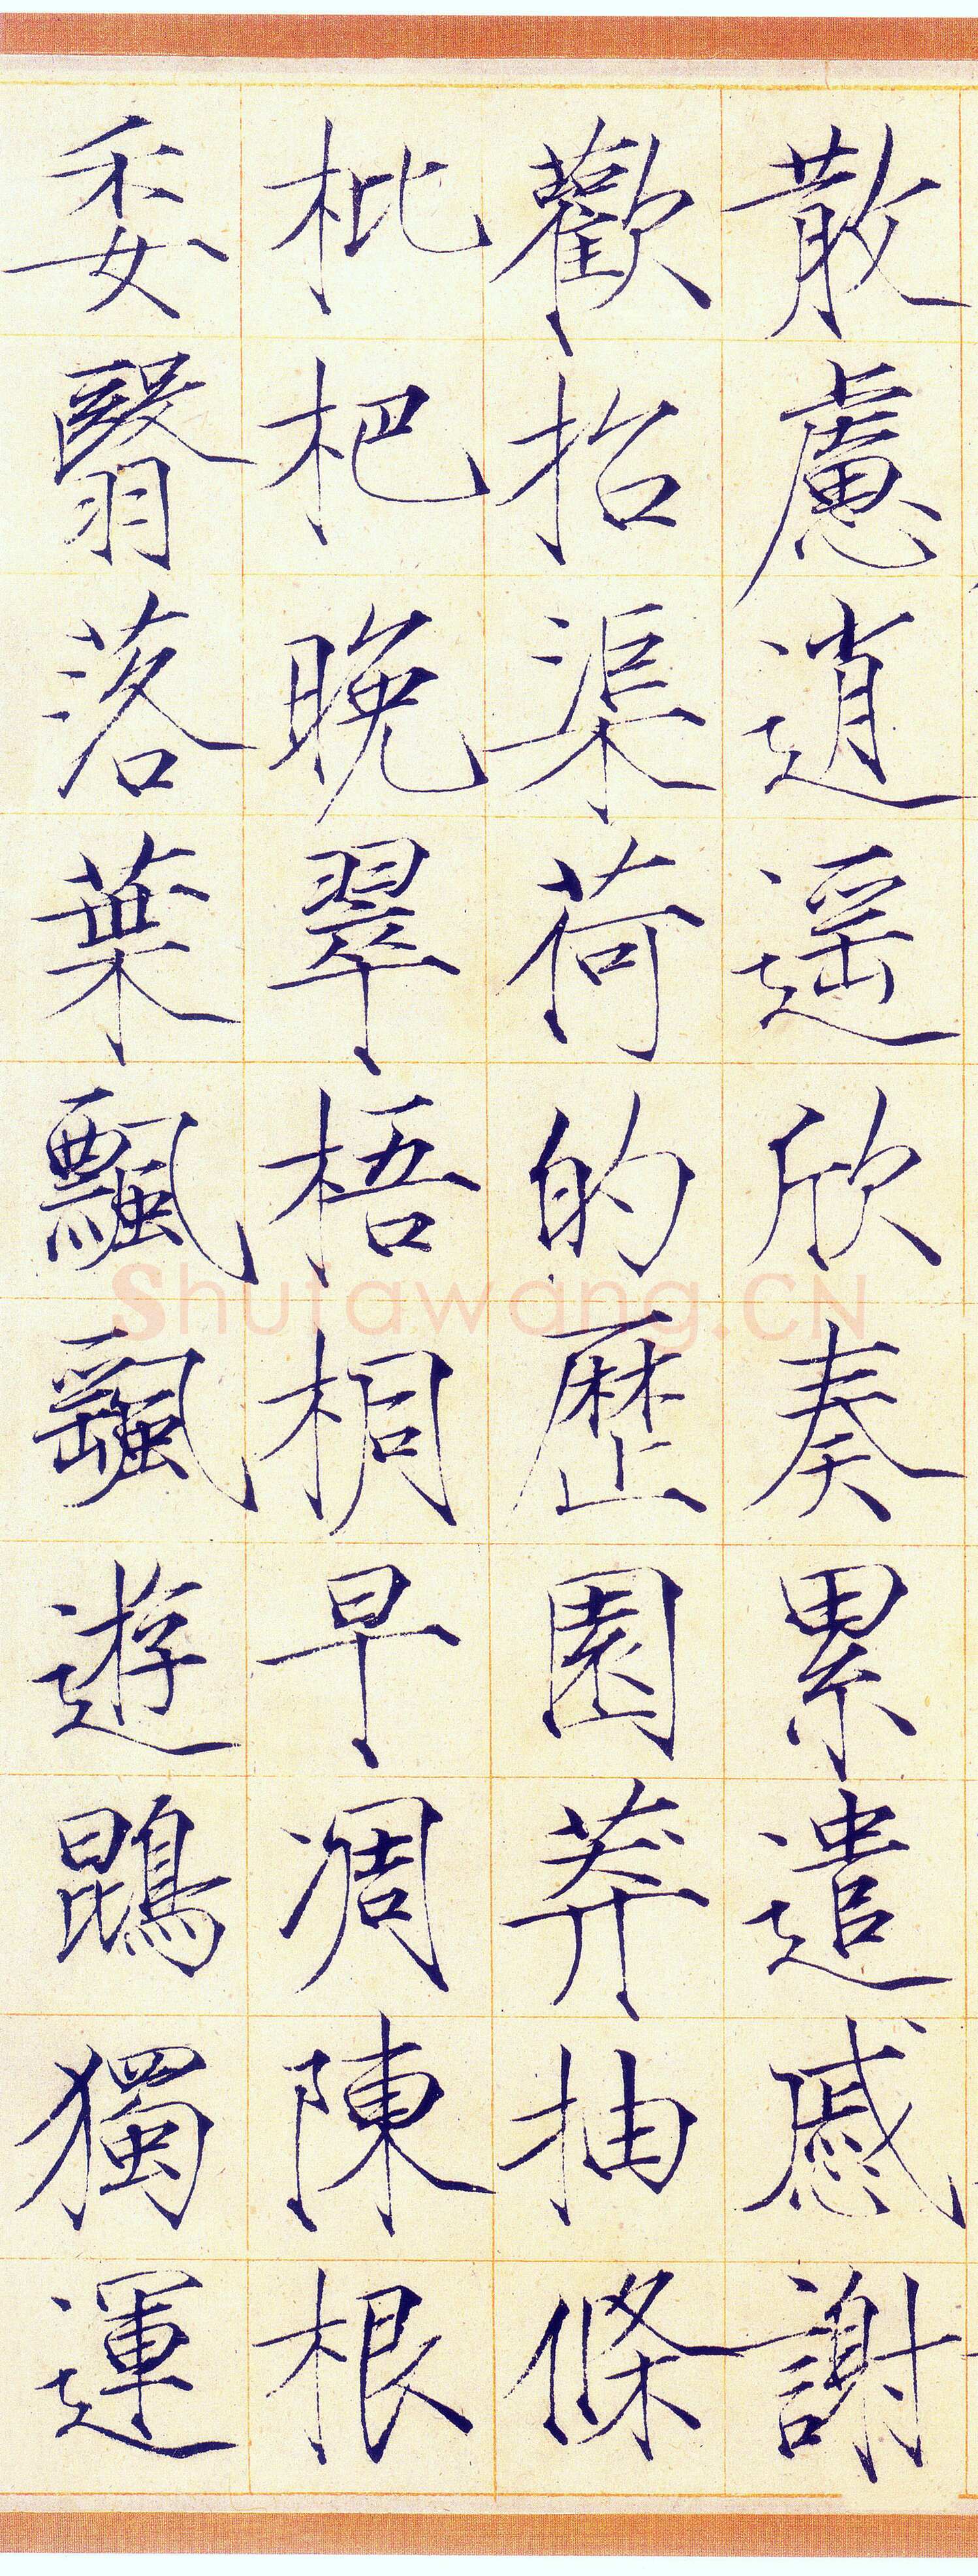 散慮逍遥欣奏累遣慼謝
歡招渠荷的歷園莽抽條
枇杷晚翠梧桐早凋陳根
委翳落葉飄颻遊鵾獨運
Shufawang.CN